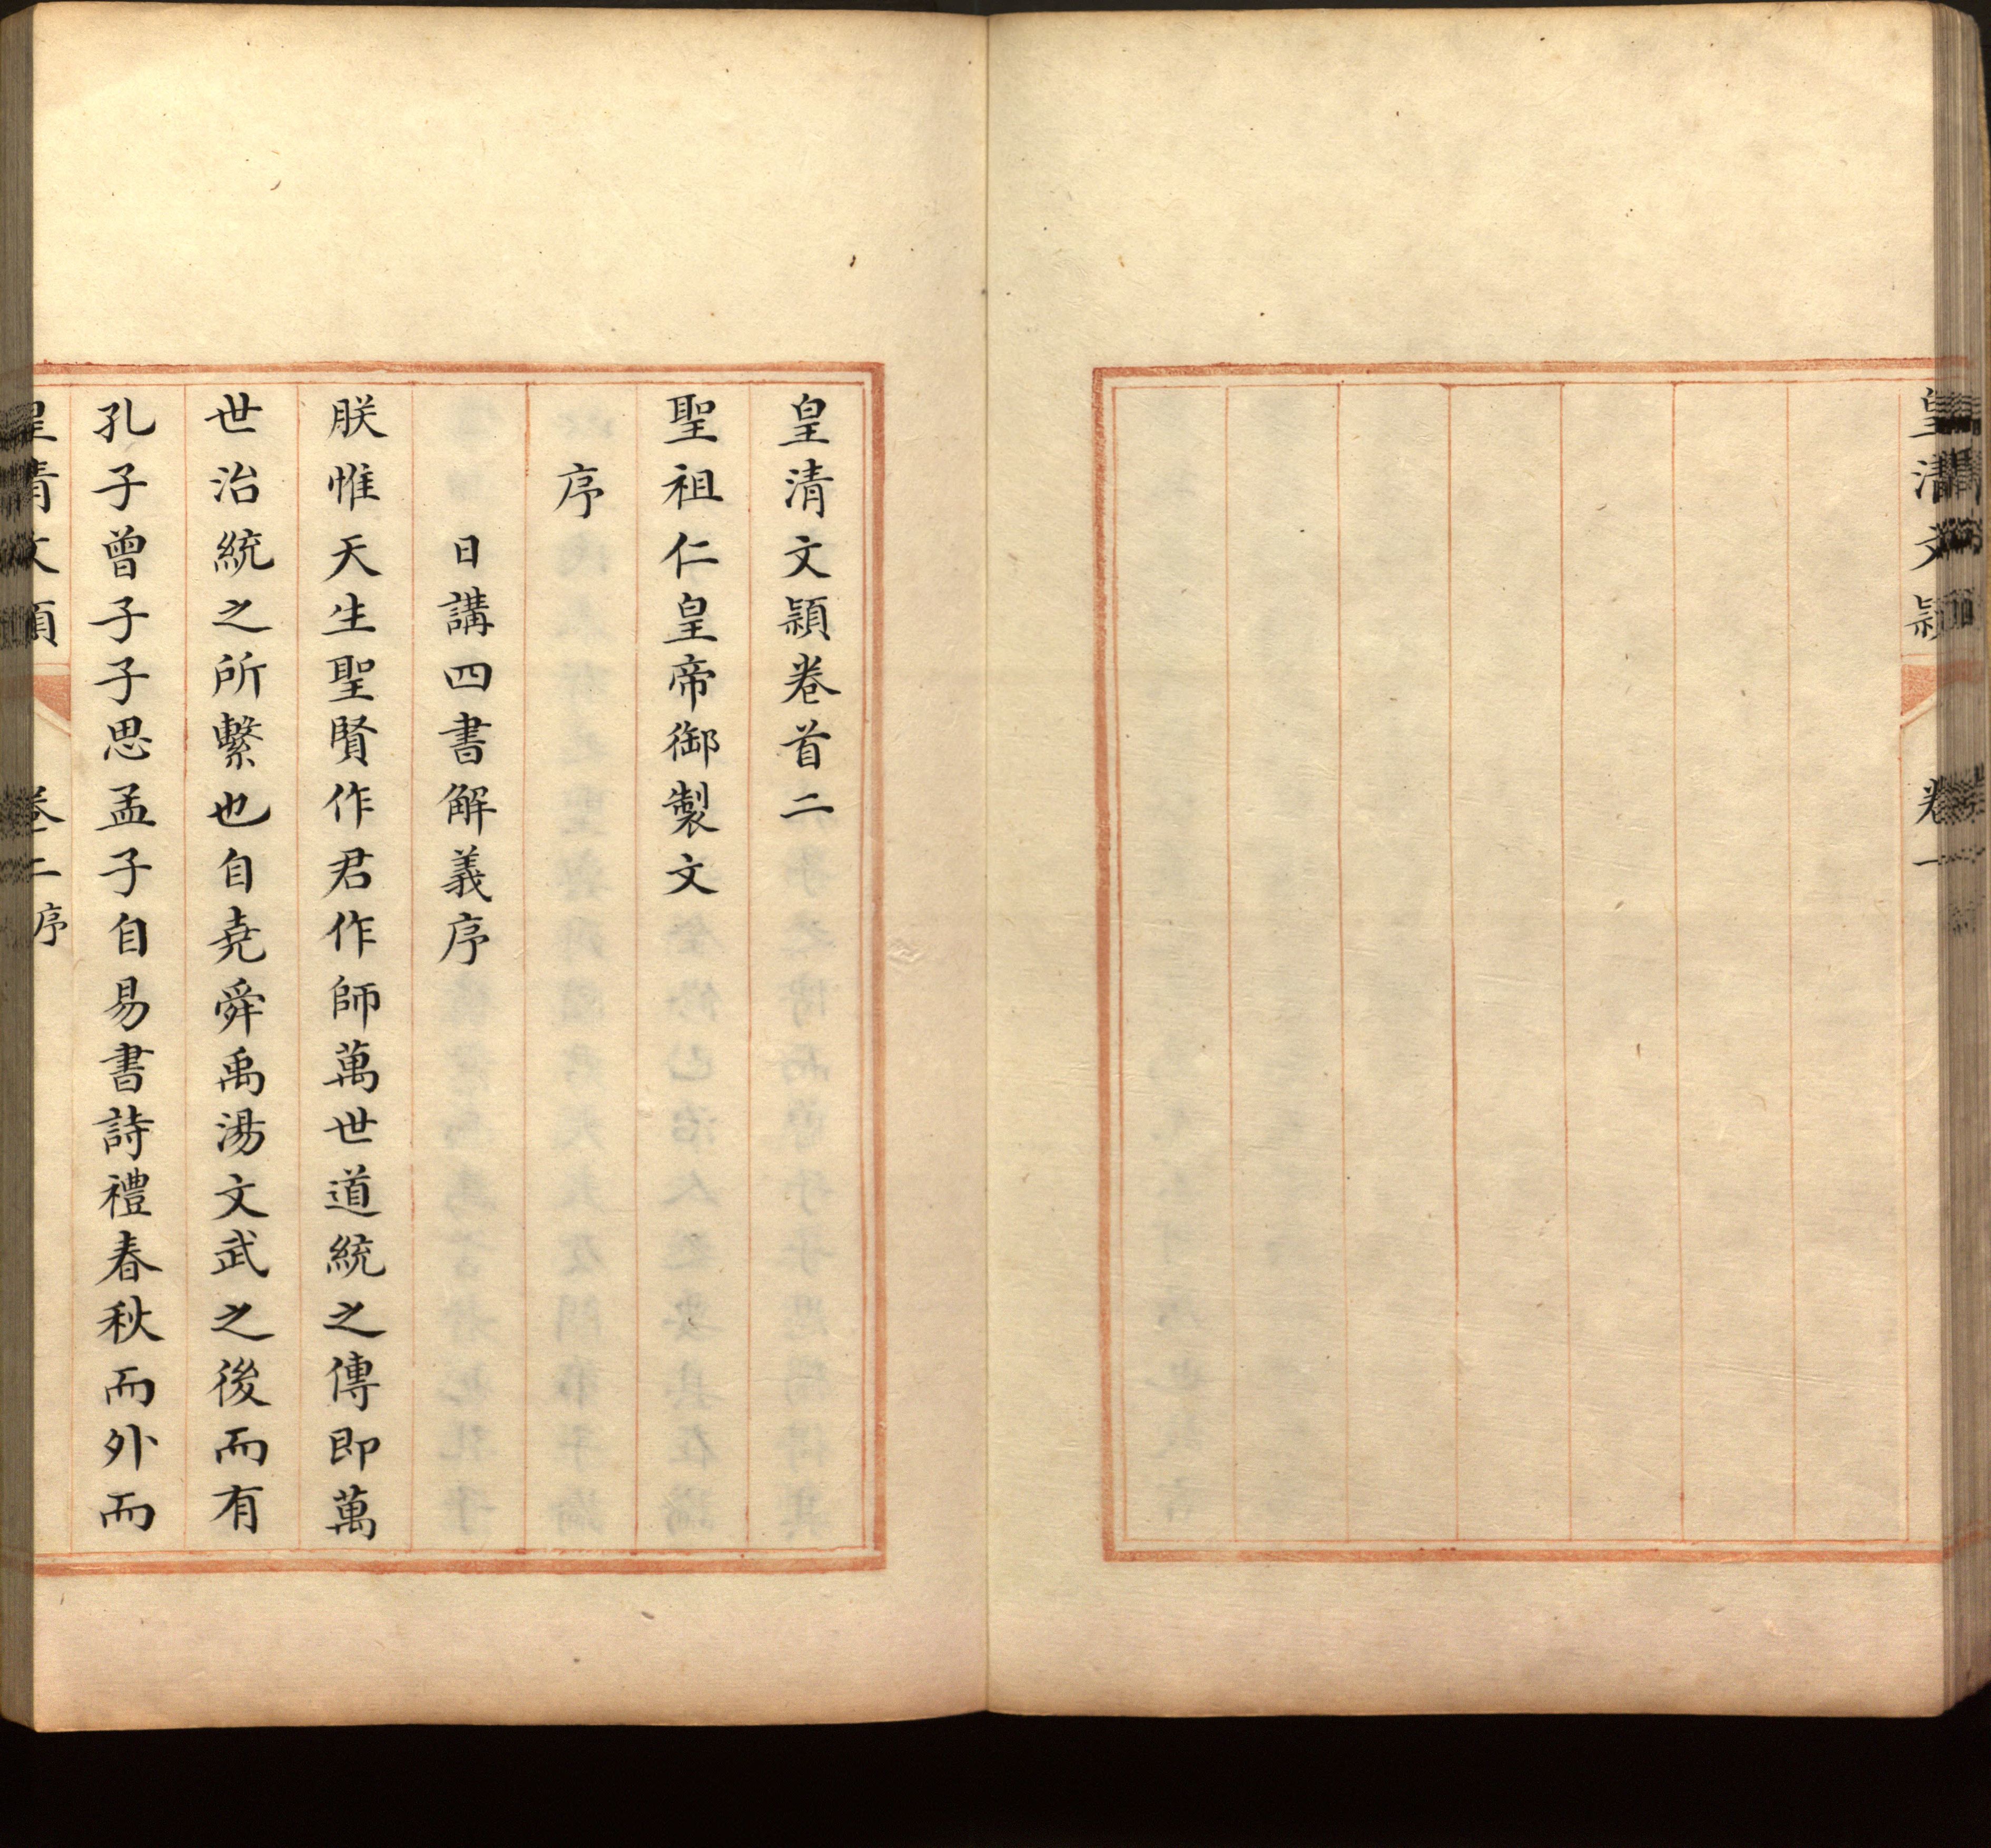 皇清文穎
卷一
皇清文穎卷首二
聖祖仁皇帝御製文
序
日講四書解義序
朕惟天生聖賢作君作師萬世道統之傳即萬
世治統之所繫也自堯舜禹湯文武之後而有
孔子曾子子思孟子自易書詩禮春秋而外而
皇清文穎
卷二序